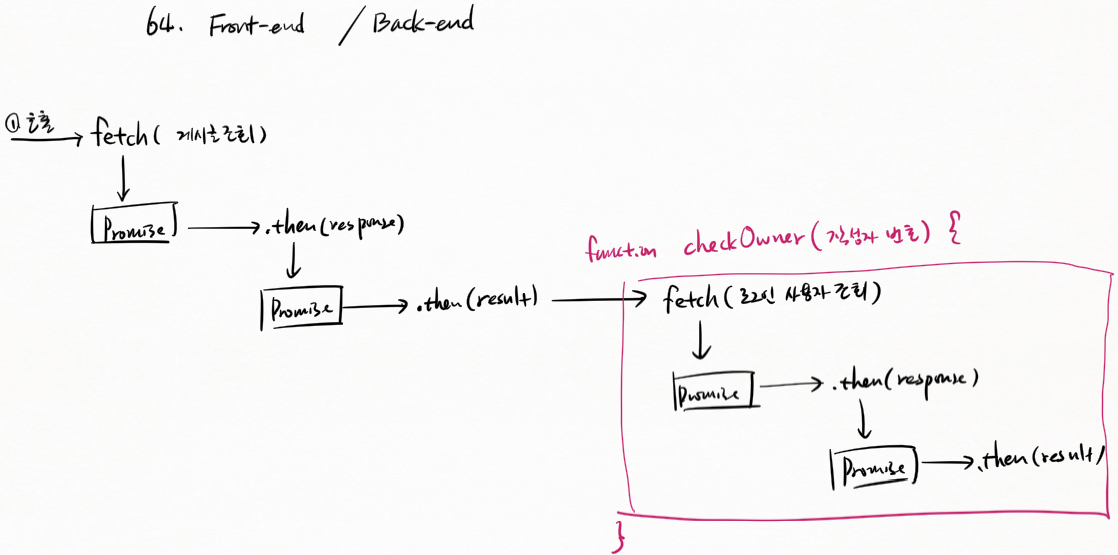 64. Front-end / Back-end
① 호출
fetch( 게시글 조회)
Promise
.then(response)
Promise
.then(result)
function checkOwner(작성자 번호) {
fetch(로그인 사용자 조회)
Promise
.then(response)
Promise
.then(result)
}